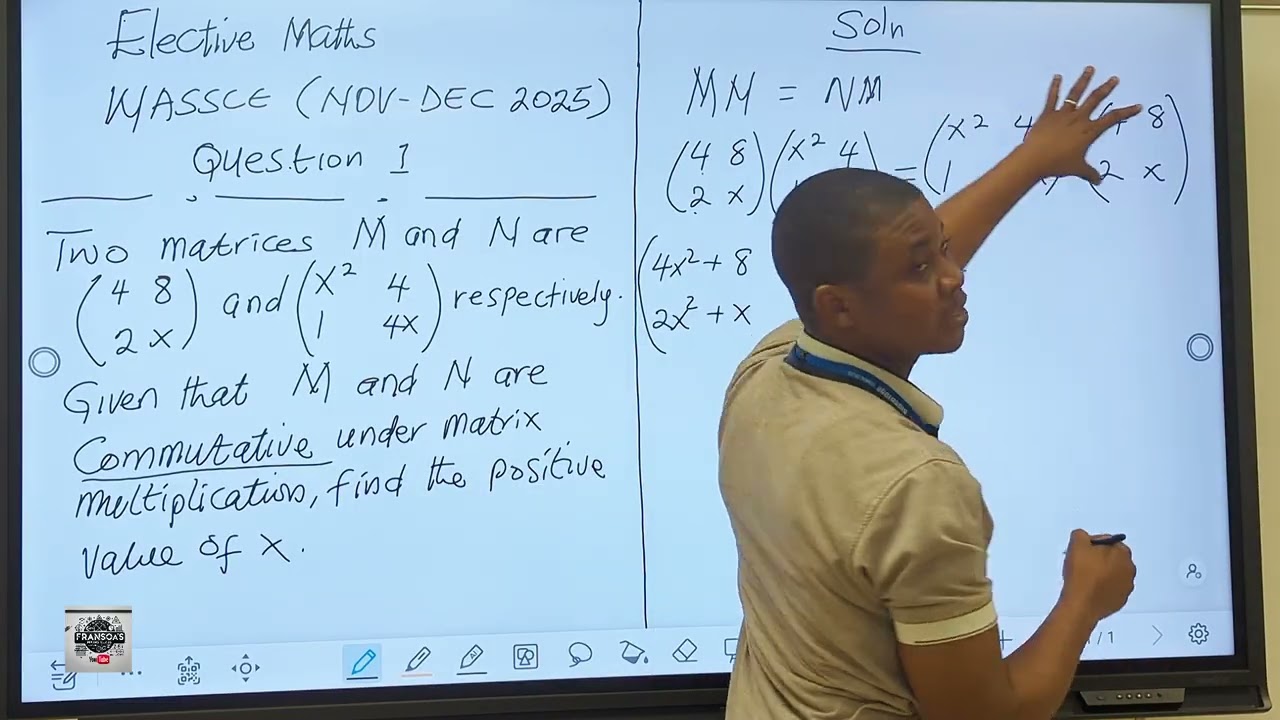 Elective Maths
WASSCE (NOV-DEC 2025)
Question 1
Two matrices M and N are
(4 8
2 x) and (x² 4
1 4x) respectively.
Given that M and N are
Commutative under matrix
multiplication, find the positive
value of x.
Soln
MN = NM
(4 8
2 x)(x² 4) = (x² 4
1 8
2 x)
(4x² + 8
2x² + x
FRANSOA'S
YouTube
/1